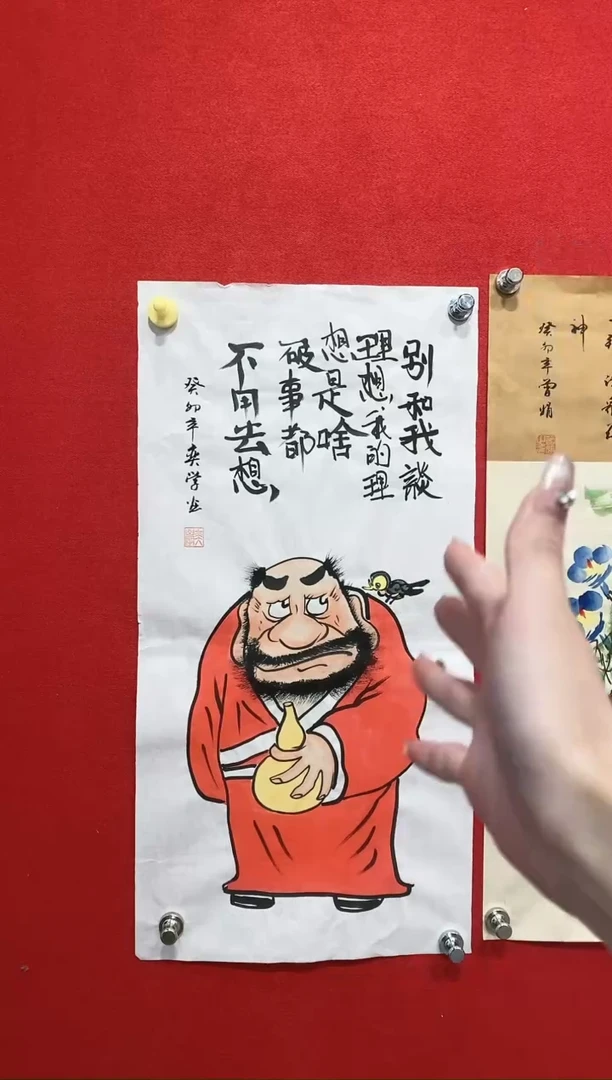 别和我談
理想,我的理
想是啥
破事都
不用去想,
癸卯年奕学画
神
癸卯年曾娟